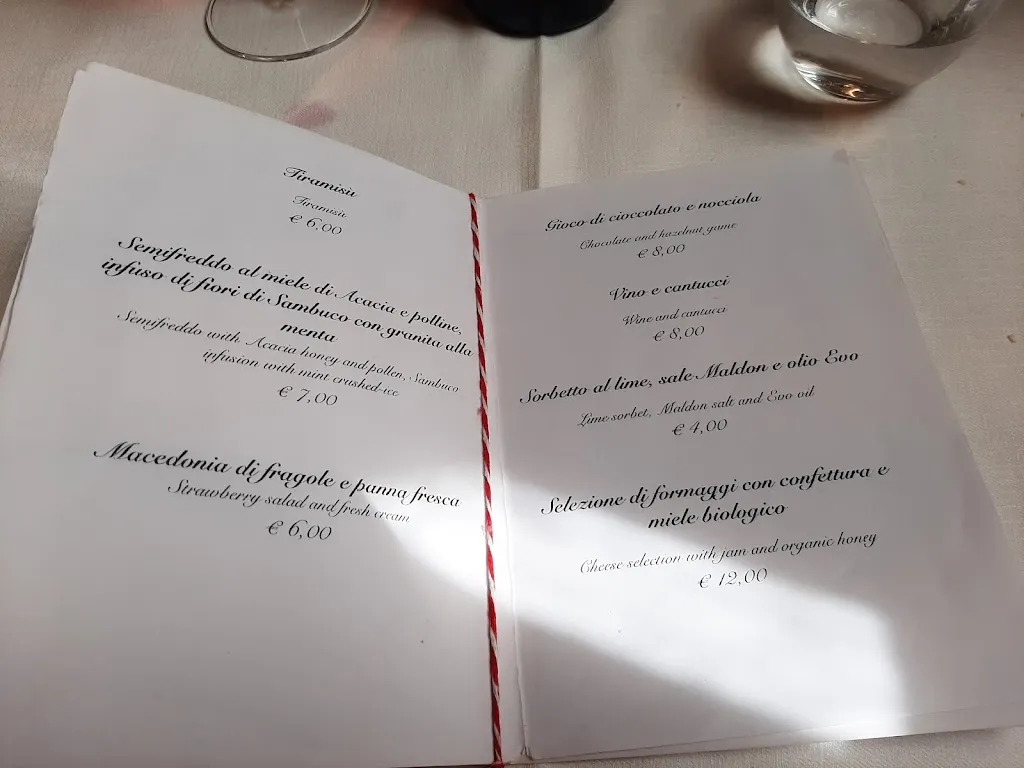 Tiramisù
Tiramisù
€ 6,00
Semifreddo al miele di Acacia e polline,
infuso di fiori di Sambuco con granita alla
menta
Semifreddo with Acacia honey and pollen, Sambuco
infusion with mint crushed-ice
€ 7,00
Macedonia di fragole e panna fresca
Strawberry salad and fresh cream
€ 6,00
Gioco di cioccolato e nocciola
Chocolate and hazelnut game
€ 8,00
Vino e cantucci
Wine and cantucci
€ 8,00
Sorbetto al lime, sale Maldon e olio Evo
Lime sorbet, Maldon salt and Evo oil
€ 4,00
Selezione di formaggi con confettura e
miele biologico
Cheese selection with jam and organic honey
€ 12,00